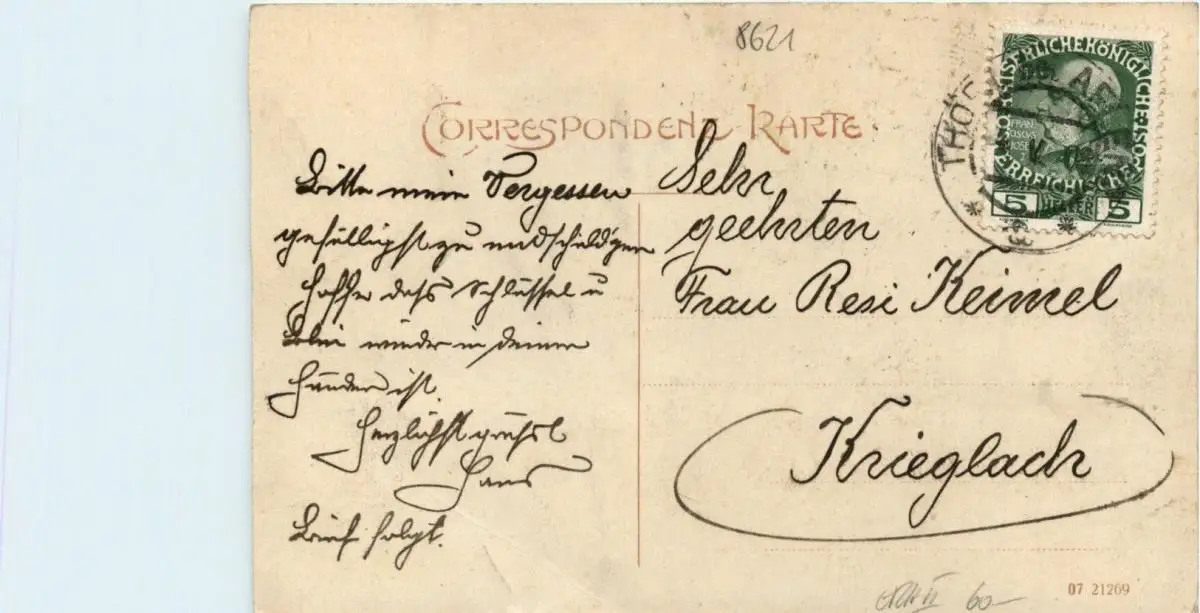 8621
CORRESPONDENZ-KARTE.
Bitte mein Vergessen
gefälligst zu entschuldigen
Hoffe dass Schlüssel u
wieder in deinen
Händen ist.
Herzlichst grüßt
Hans
Brief folgt.
Sehr
geehrten
Frau Resi Keimel
Krieglach
KAISERLICHE KÖNIGLICHE
ÖSTERREICHISCHE POST
FRANZ
JOSEF
5 HELLER 5
THÖRL
V
60—
07 21269